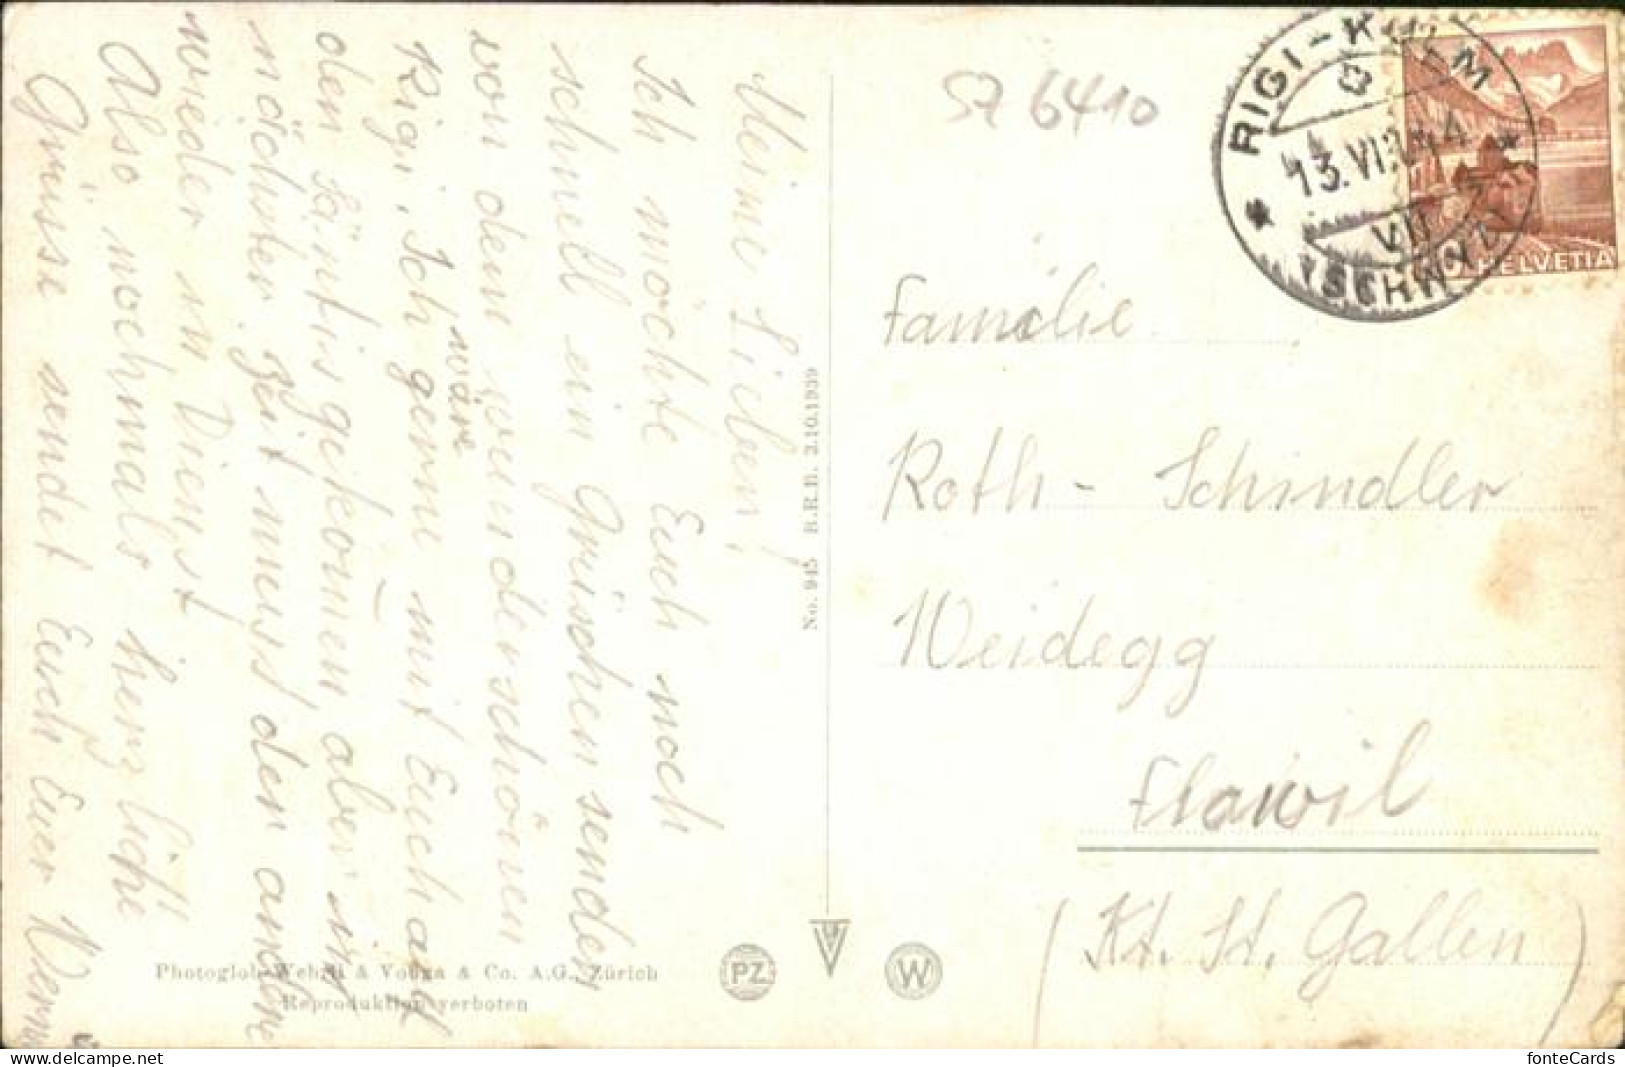 Meine Lieben,
Ich möchte Euch noch
schnell ein Grüschen senden
von dem wunderschönen
Rigi. Ich wäre gerne mit Euch auf
den Säntis gekom̄en, aber in
nächster Zeit muss den andern
wieder in Dienst
Also nochmals herzliche
Grüsse sendet Euch Euer Werni
SZ 6410
RIGI-KULM
13. VI
VII
(SCHWYZ)
HELVETIA
Familie
Roth - Schindler
Weidegg
Flawil
(Kt. St. Gallen)
No. 945 B.R.B. 3.10.1939
Photoglob-Wehrli & Vouga & Co. A.G., Zürich
Reproduktion verboten
PZ
W
fonteCards